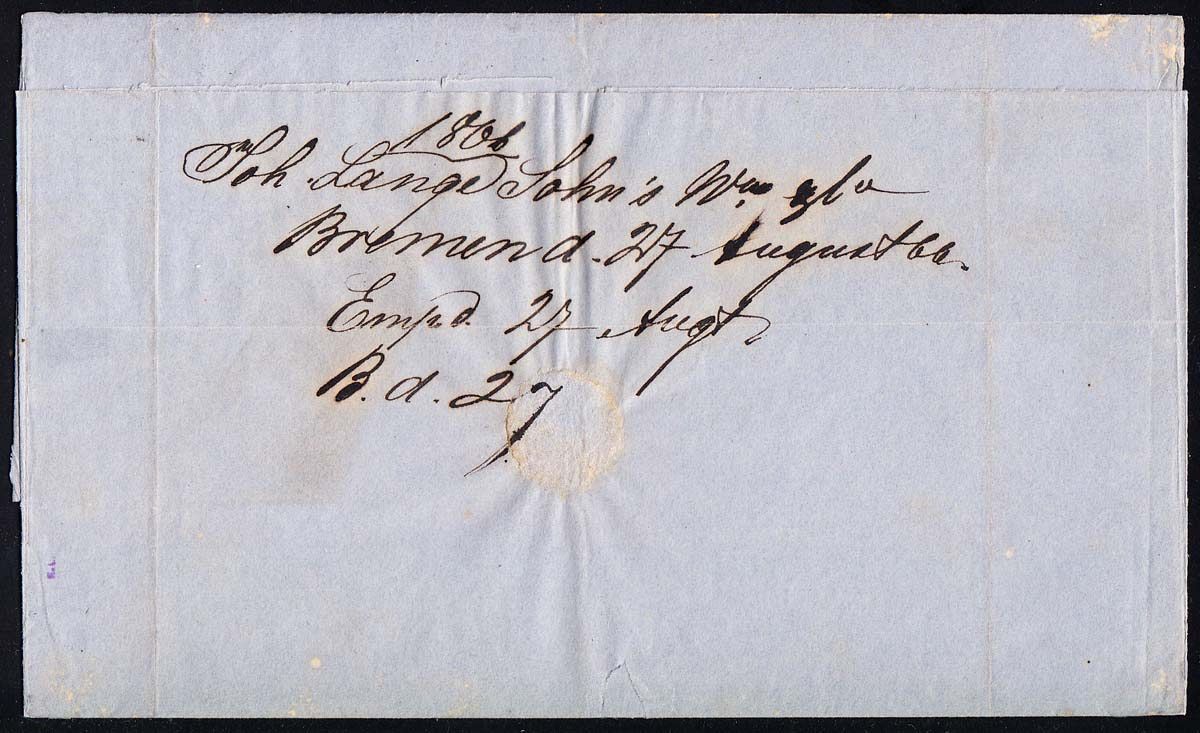 1866
Joh. Lange Sohn's Wwe & Co
Bremen d. 27 August 66.
Empd. 27 Augt
B. d. 27